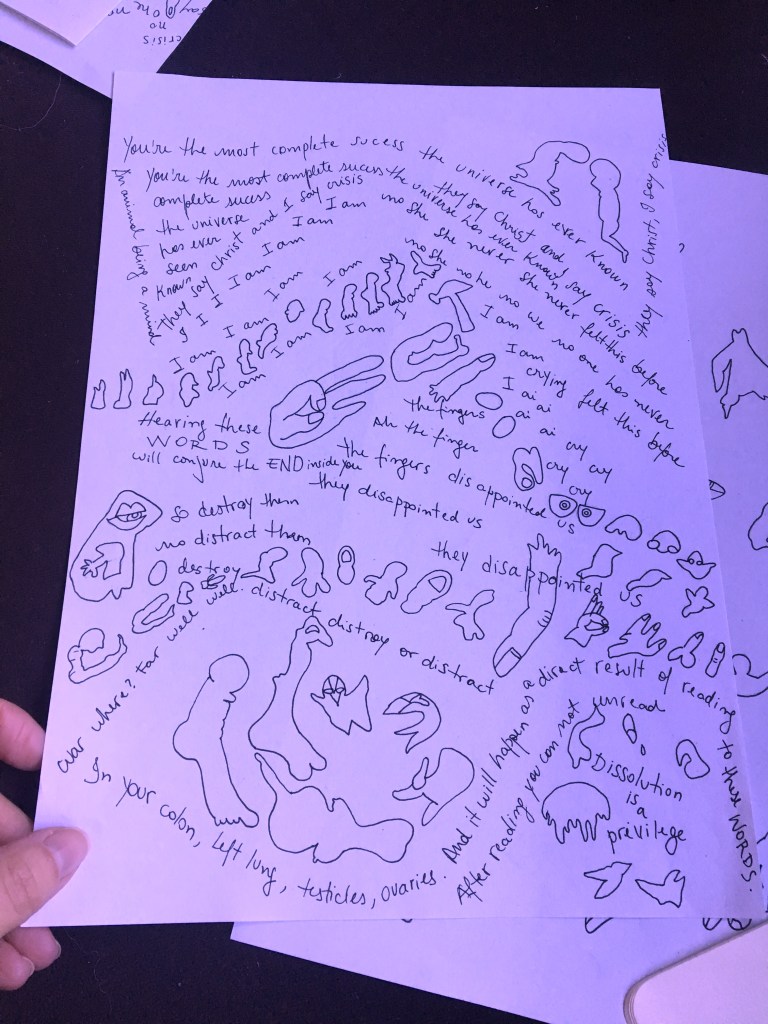 crisis
no
say no he
You're the most complete sucess the universe has ever known
You're the most complete sucess the universe has ever known say crisis
complete sucess
the universe
has ever
seen
known
they say Christ and
They say Christ and I say crisis
they say Christ, I say crisis
An animal being a mind
I am no she she never she never felt this before
I am
I am
I I I am
I am
I am
I am
I am I am
I am
I am
I am
I am
no she no he no we no one has never
I am
I am crying felt this before
I ai ai
ai ai cry cry
cry cry
cry
the fingers
the finger
Hearing these
WORDS
will conjure the END inside you
the fingers disappointed us
they disappointed us
they disappointed us
so destroy them
no distract them
O destroy
War where? Far well well. distract distroy or distract
In your colon, left lung, testicles, ovaries. And it will happen as a direct result of reading to these WORDS.
After reading you can not unread
Dissolution
is a
privilege